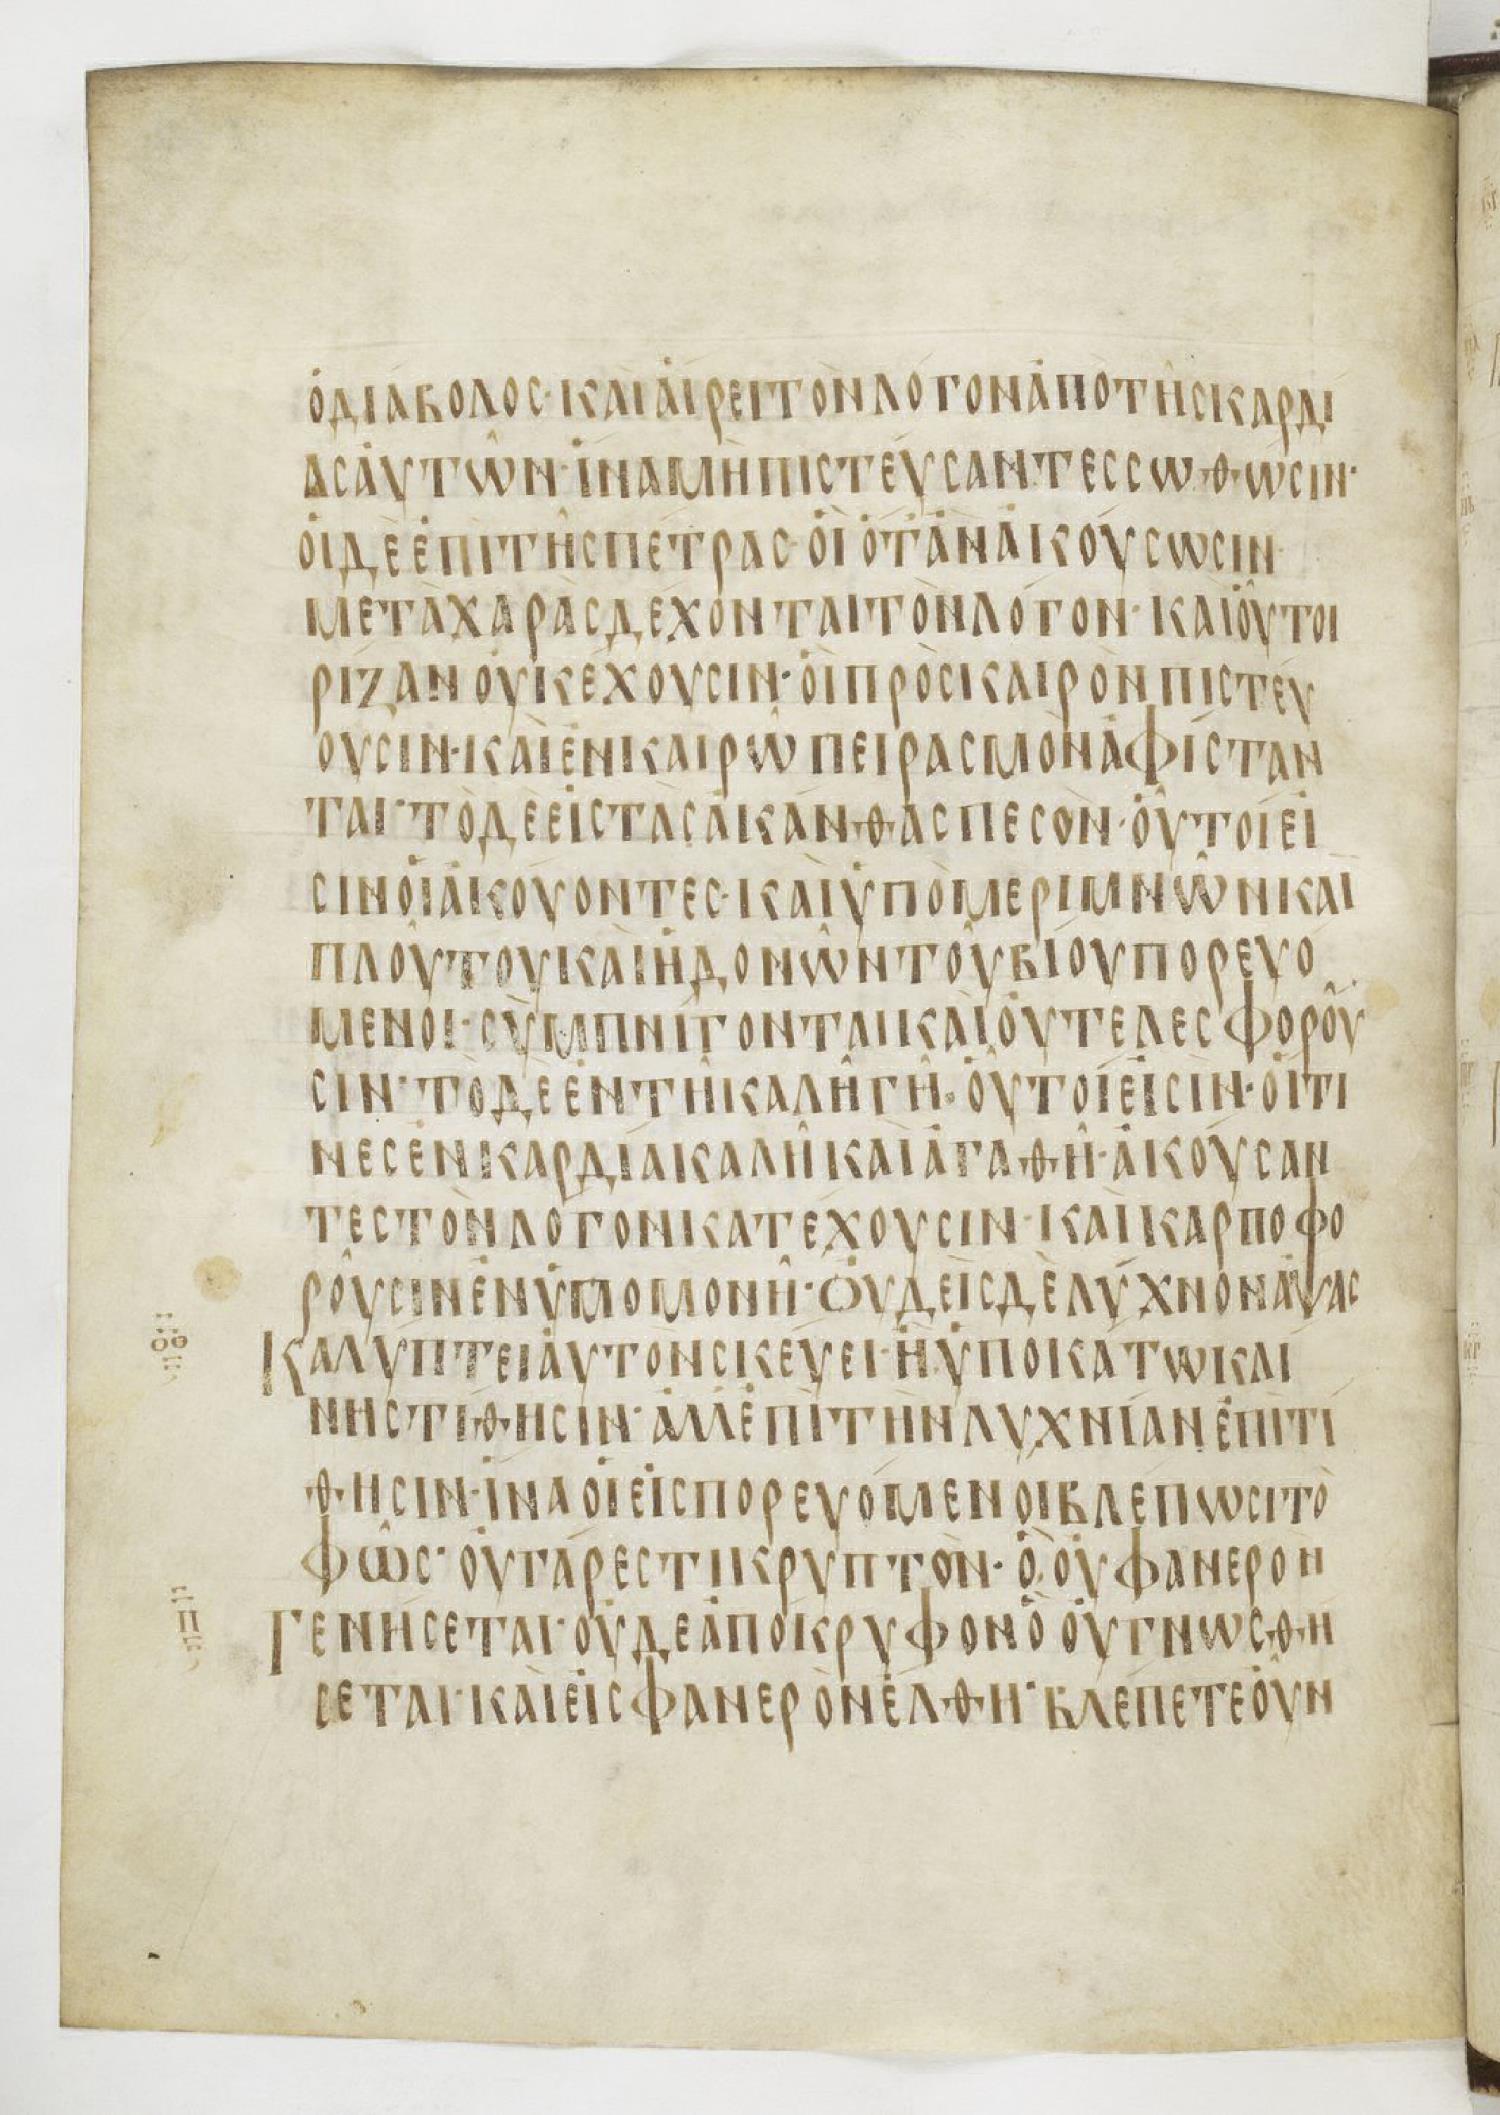 ὁ διάβολος· καὶ αἴρει τὸν λόγον ἀπὸ τῆς καρδί
ας αὐτῶν· ἵνα μὴ πιστεύσαντες σωθῶσιν·
οἱ δὲ ἐπὶ τῆς πέτρας· οἳ ὅταν ἀκούσωσιν
μετὰ χαρᾶς δέχονται τὸν λόγον· καὶ οὗτοι
ρίζαν οὐκ ἔχουσιν· οἳ πρὸς καιρὸν πιστεύ
ουσιν· καὶ ἐν καιρῶ πειρασμὸν ἀφίσταν
ται· τὸ δὲ εἰς τὰς ἀκάνθας πεσὸν· οὗτοί εἰ
σιν οἱ ἀκούοντες· καὶ ὑπὸ μεριμνῶν καὶ
πλούτου καὶ ἡδονῶν τοῦ βίου πορευό
μενοι· συμπνίγονται καὶ οὐ τελεσφοροῦ
σιν· τὸ δὲ ἐν τῆ καλῆ γῆ· οὗτοί εἰσιν· οἵτι
νες ἐν καρδία καλῆ καὶ ἀγαθῆ· ἀκούσαν
τες τὸν λόγον κατέχουσιν· καὶ καρποφο
ροῦσιν ἐν ὑπομονῆ· Οὐδεὶς δὲ λύχνον ἅψας
οθ
Καλύπτει αὐτὸν σκεύει· ἢ ὑποκάτω κλί
νης τίθησιν· ἀλλ' ἐπὶ τὴν λυχνίαν ἐπιτί
θησιν· ἵνα οἱ εἰσπορευόμενοι βλέπωσι τὸ
φῶς· οὐ γάρ ἐστι κρυπτὸν· ὃ οὐ φανερὸν
π
Γενήσεται· οὐδὲ ἀπόκρυφον ὃ οὐ γνωσθή
σεται· καὶ εἰς φανερὸν ἔλθη· βλέπετε οὖν